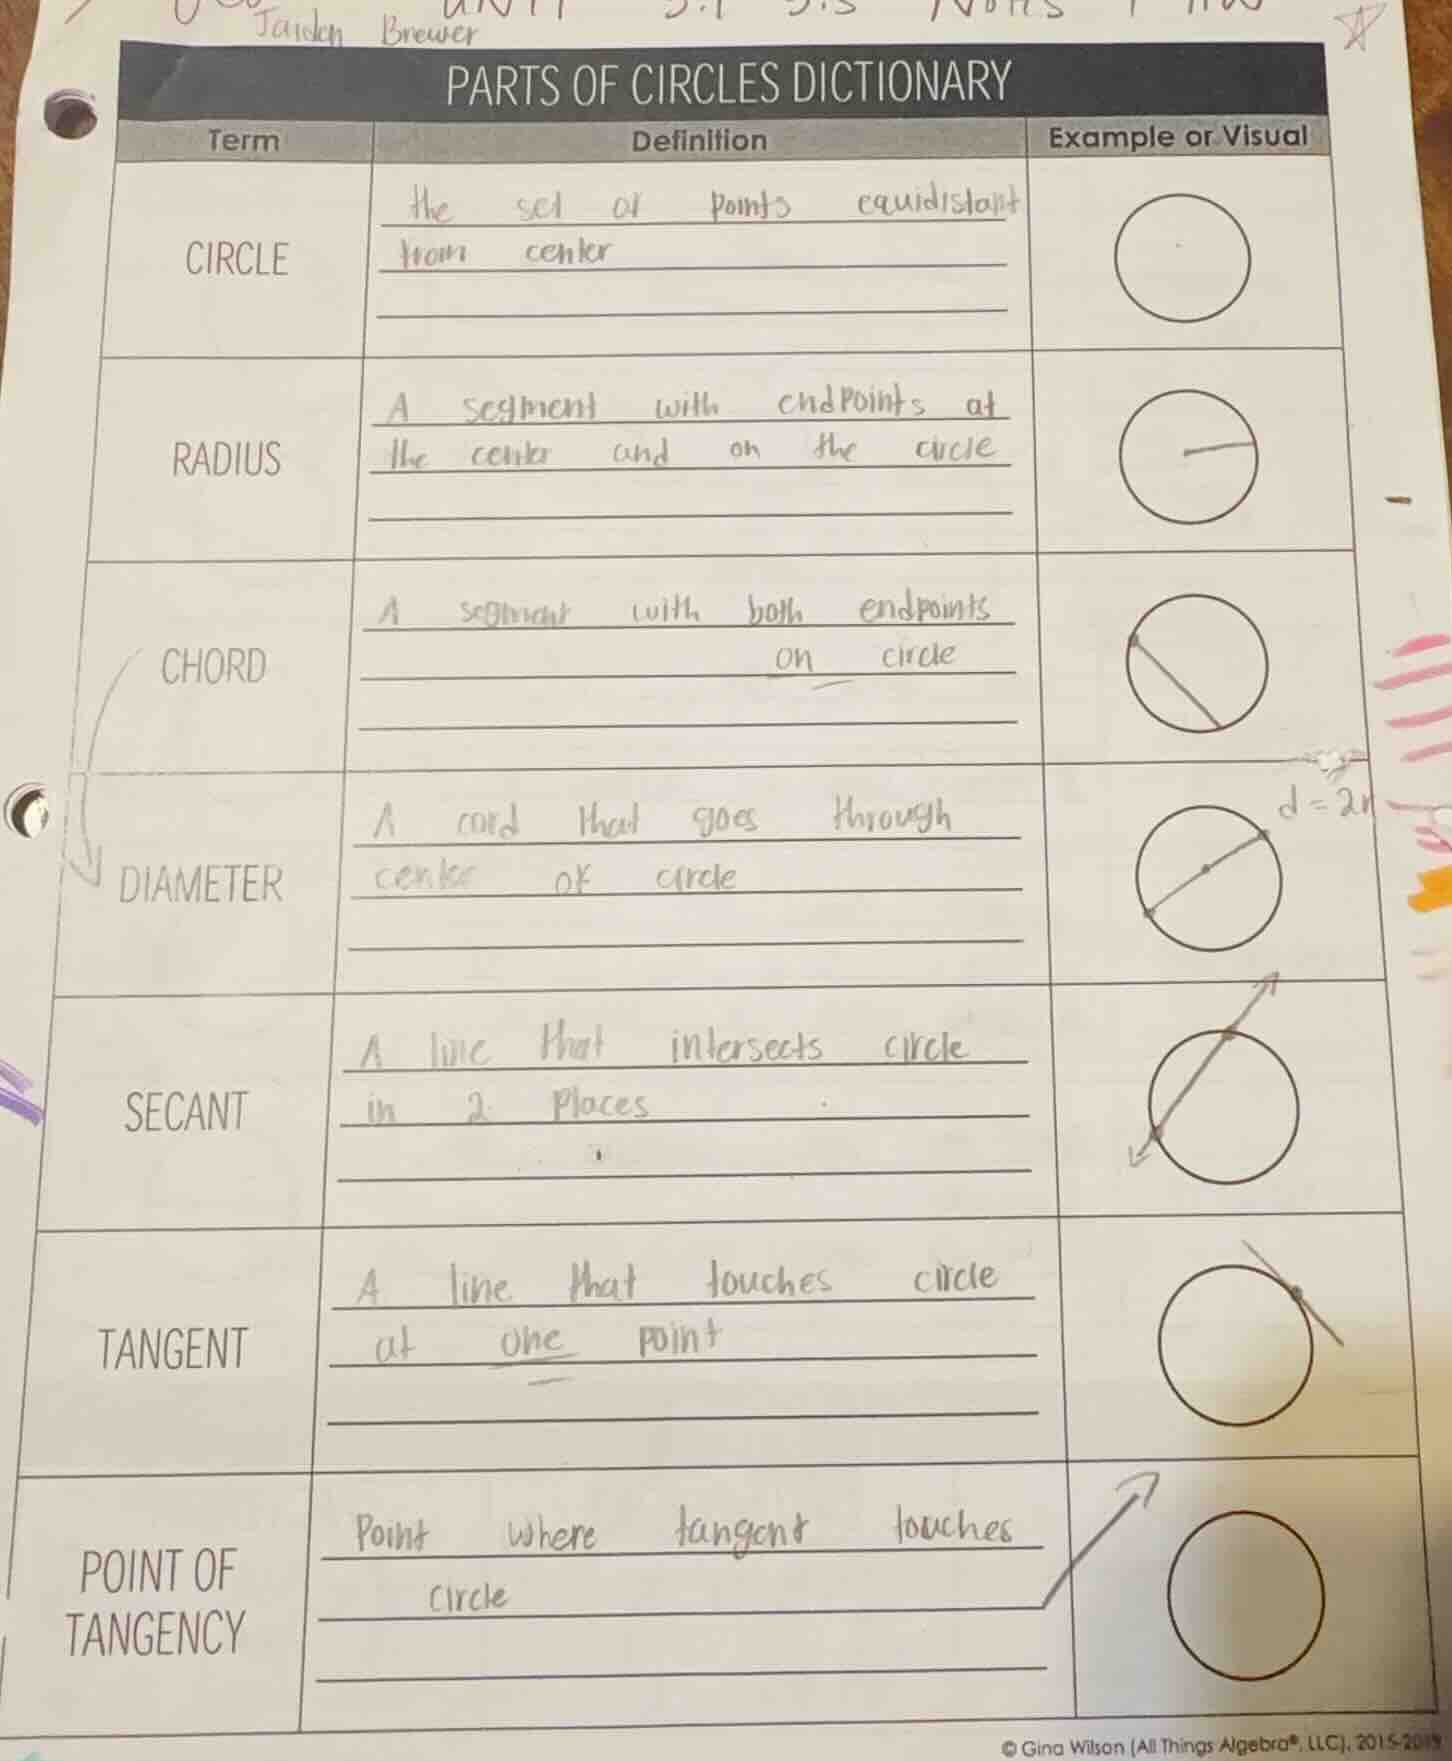 UNIT 5.1 5.3 Notes + HW
Jaiden Brewer
PARTS OF CIRCLES DICTIONARY
Term Definition Example or Visual
the set of points equidistant
CIRCLE
from center
A segment with endpoints at
RADIUS
the center and on the circle
A segment with both endpoints
CHORD
on circle
d = 2r
A cord that goes through
DIAMETER
center of circle
A line that intersects circle
SECANT
in 2 places
A line that touches circle
TANGENT
at one point
Point where tangent touches
POINT OF
TANGENCY
circle
© Gina Wilson (All Things Algebra®, LLC), 2015-2018